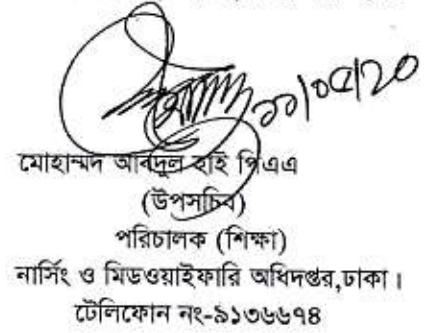 ১১/০৫/২০
মোহাম্মদ আবদুল হাই পিএএ
(উপসচিব)
পরিচালক (শিক্ষা)
নার্সিং ও মিডওয়াইফারি অধিদপ্তর,ঢাকা।
টেলিফোন নং-৯১৩৬৬৭৪